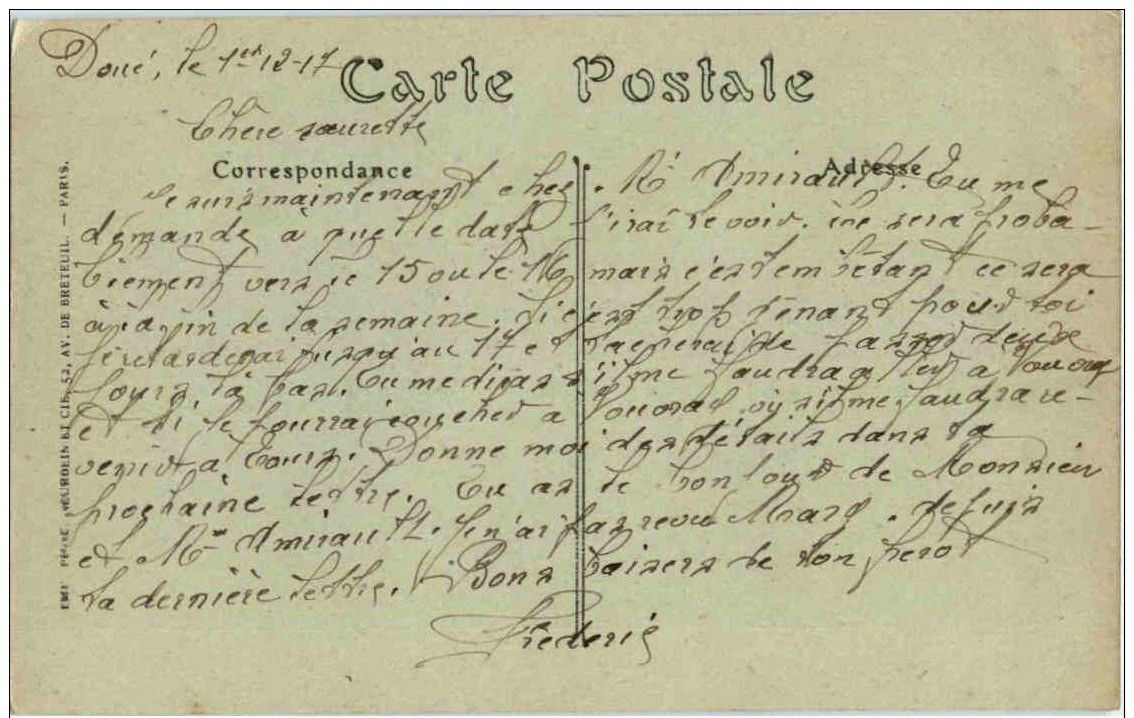 Doué, le 1er 12-17
Carte Postale
Chère sœurette
Correspondance
Adresse
Je suis maintenant chez Mr Amirault. Tu me
demande à quelle date j'irai te voir. ce sera proba-
blement vers le 15 ou le 16 mais c'est embêtant ce sera
à la fin de la semaine. Si c'est trop gênant pour toi
je retarderai jusqu'au 17 et tacherai de passer deux
jours là bas. Tu me diras s'il me faudra aller à
et si je pourrai coucher à ou s'il me faudra re-
venir à Tours. Donne moi des détails dans ta
prochaine lettre. Tu as le bonjour de Monsieur
et Mme Amirault. Je n'ai pas revu Marg. depuis
ta dernière lettre. Bons baisers de ton
Frederic
IMP. NEURDEIN ET CIE. 52, AV. DE BRETEUIL. — PARIS.